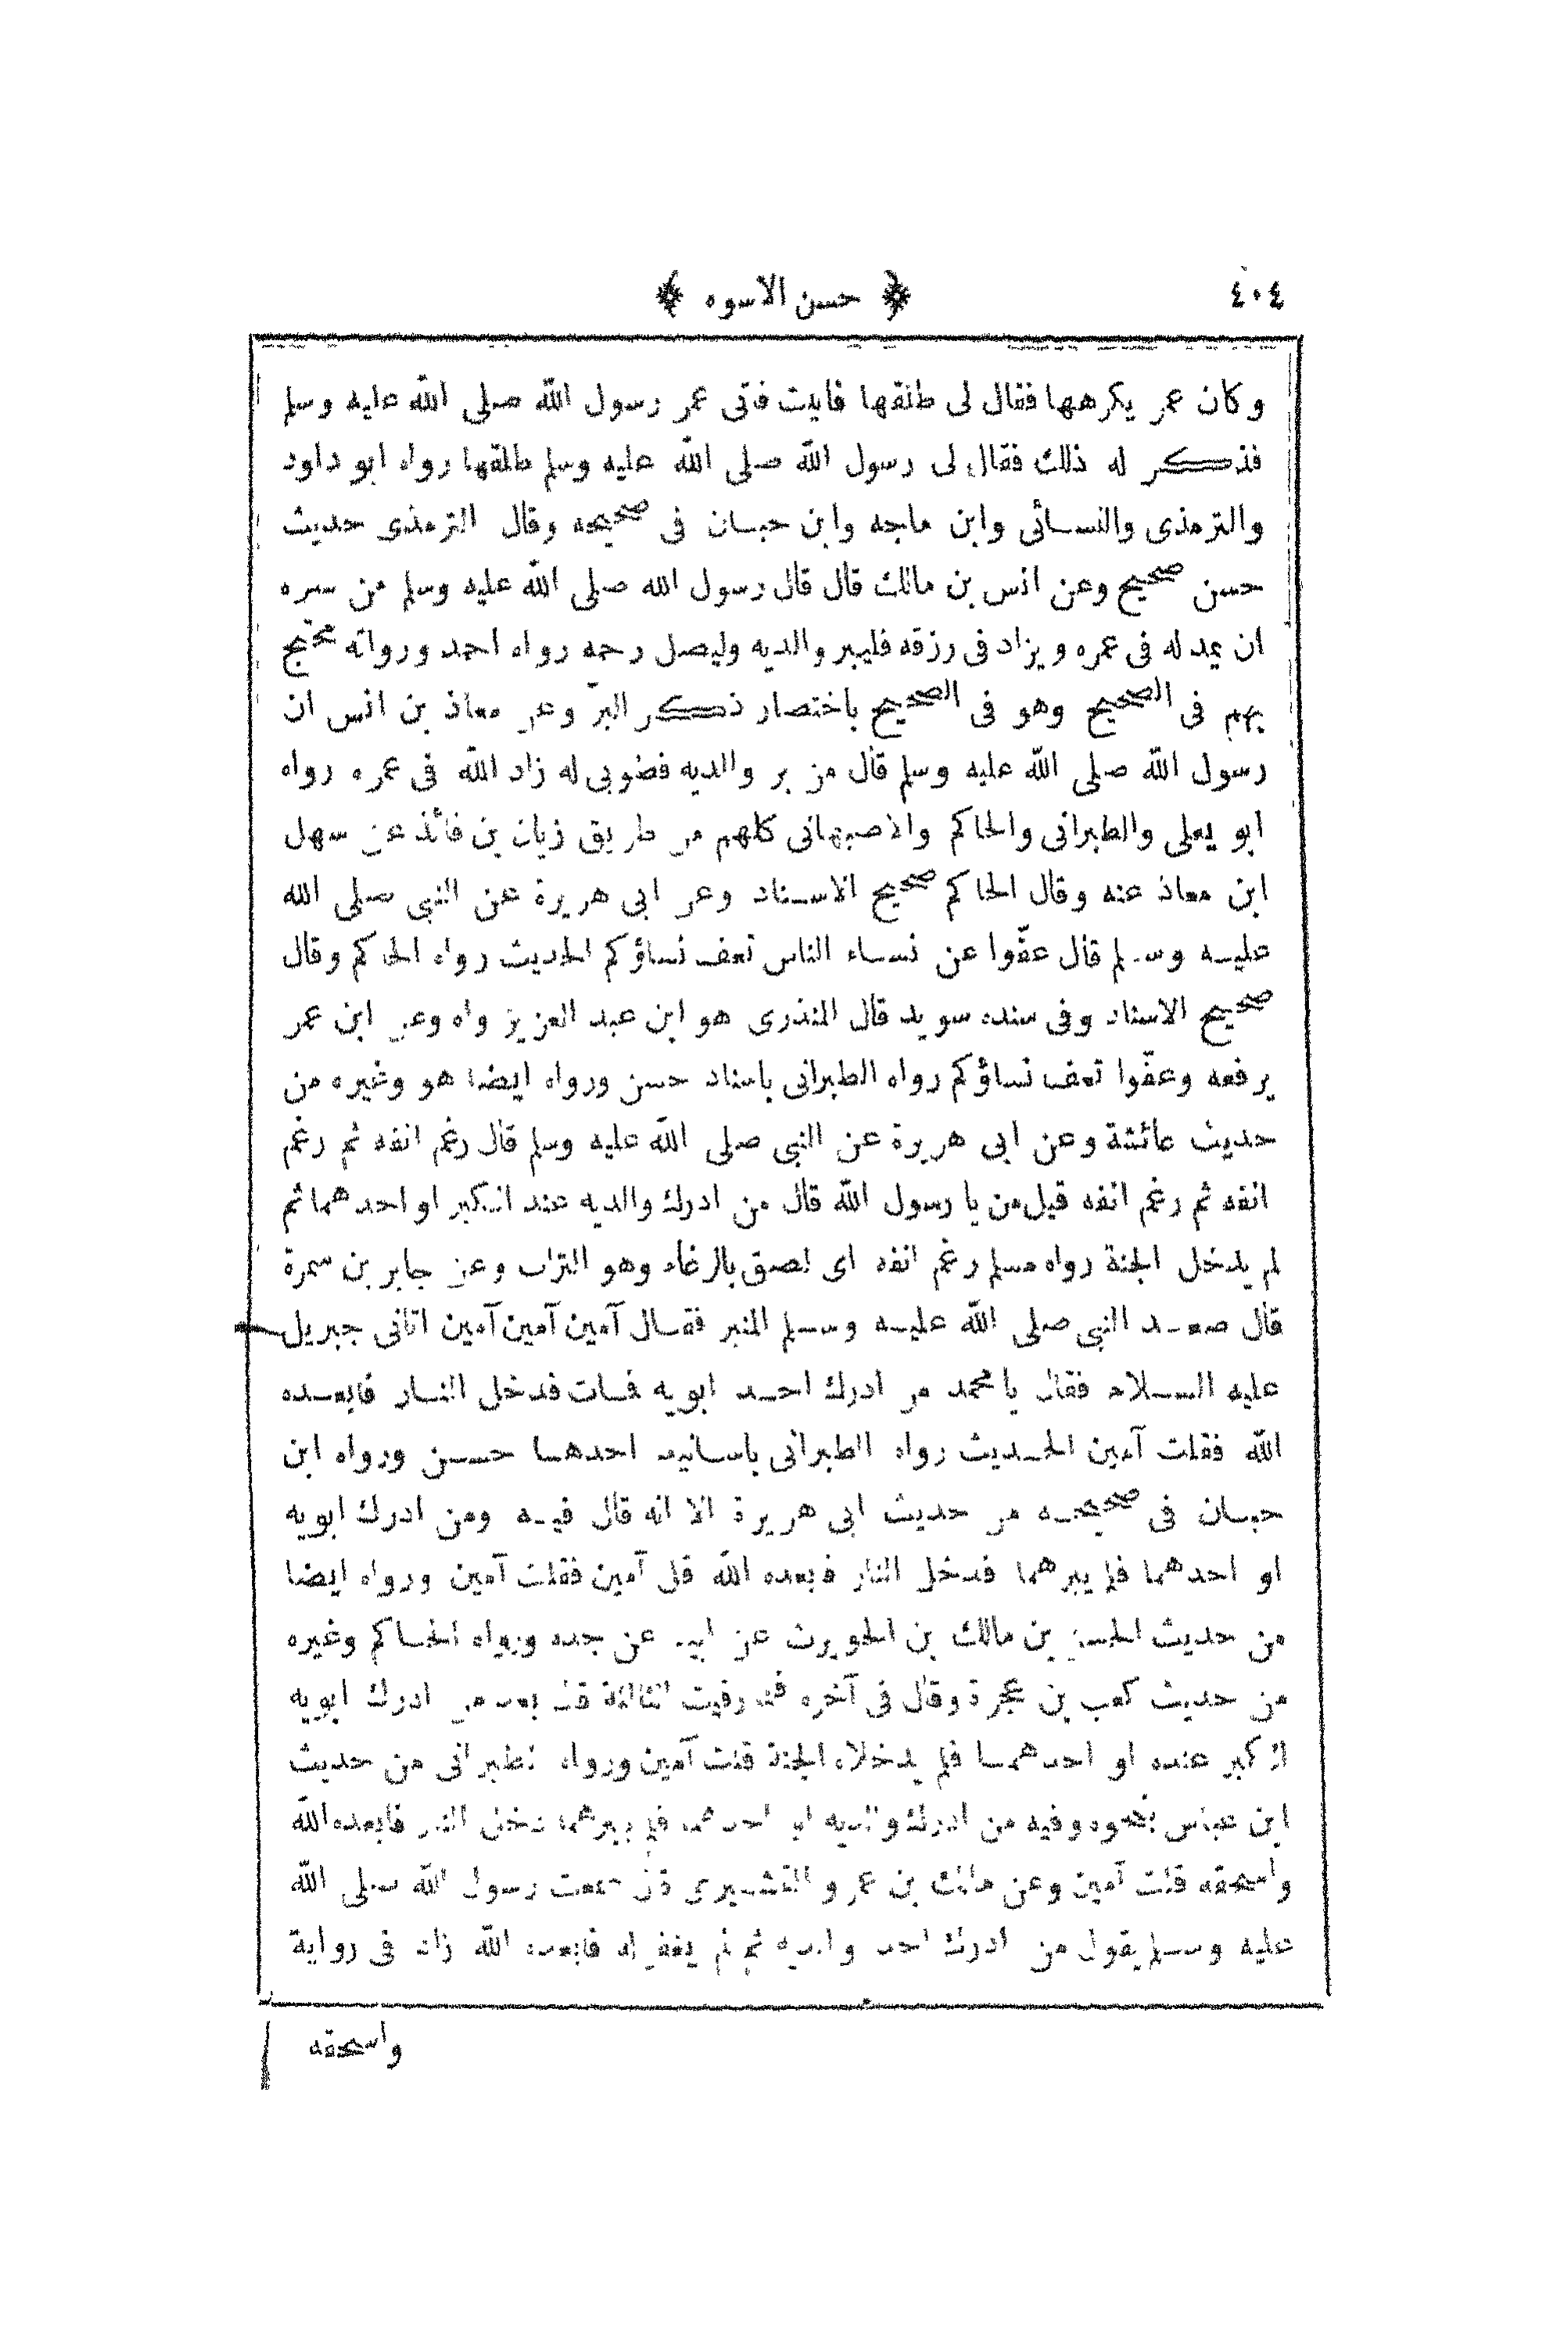 ٤٠٤
﴿ حسن الاسوه ﴾
وكان عمر يكرهها فقال لى طلقها فابيت فاتى عمر رسول الله صلى الله عليه وسلم
فذكر له ذلك فقال لى رسول الله صلى الله عليه وسلم طلقها رواه ابو داود
والترمذى والنسائى وابن ماجه وابن حبان فى صحيحه وقال الترمذى حديث
حسن صحيح وعن انس بن مالك قال قال رسول الله صلى الله عليه وسلم من سره
ان يمد له فى عمره ويزاد فى رزقه فليبر والديه وليصل رحمه رواه احمد ورواته محتج
بهم فى الصحيح وهو فى الصحيح باختصار ذكر البرّ وعن معاذ بن انس ان
رسول الله صلى الله عليه وسلم قال من بر والديه فطوبى له زاد الله فى عمره رواه
ابو يعلى والطبرانى والحاكم والاصبهانى كلهم من طريق زبان بن فائد عن سهل
ابن معاذ عنه وقال الحاكم صحيح الاسناد وعن ابى هريرة عن النبى صلى الله
عليه وسلم قال عفّوا عن نساء الناس تعف نساؤكم الحديث رواه الحاكم وقال
صحيح الاسناد وفى سنده سويد قال المنذرى هو ابن عبد العزيز واه وعن ابن عمر
يرفعه وعفّوا تعف نساؤكم رواه الطبرانى باسناد حسن ورواه ايضا هو وغيره من
حديث عائشة وعن ابى هريرة عن النبى صلى الله عليه وسلم قال رغم انفه ثم رغم
انفه ثم رغم انفه قيل من يا رسول الله قال من ادرك والديه عند الكبر او احدهما ثم
لم يدخل الجنة رواه مسلم رغم انفه اى لصق بالرغام وهو التراب وعن جابر بن سمرة
قال صعد النبى صلى الله عليه وسلم المنبر فقال آمين آمين آمين اتانى جبريل
عليه السلام فقال يا محمد من ادرك احد ابويه فمات فدخل النار فابعده
الله فقلت آمين الحديث رواه الطبرانى باسانيد احدها حسن ورواه ابن
حبان فى صحيحه من حديث ابى هريرة الا انه قال فيه ومن ادرك ابويه
او احدهما فلم يبرهما فدخل النار فابعده الله قل آمين فقلت آمين ورواه ايضا
من حديث الحسن بن مالك بن الحويرث عن ابيه عن جده ورواه الحاكم وغيره
من حديث كعب بن عجرة وقال فى آخره فلما رقيت الثالثة قال بعد من ادرك ابويه
الكبر عنده او احدهما فلم يدخلاه الجنة قلت آمين ورواه الطبرانى من حديث
ابن عباس بنحوه وفيه من ادرك والديه او احدهما فلم يبرهما دخل النار فابعده الله
واسحقه قلت آمين وعن مالك بن عمرو القشيرى قال سمعت رسول الله صلى الله
عليه وسلم يقول من ادرك احد والديه ثم لم يغفر له فابعده الله زاد فى رواية
واسحقه